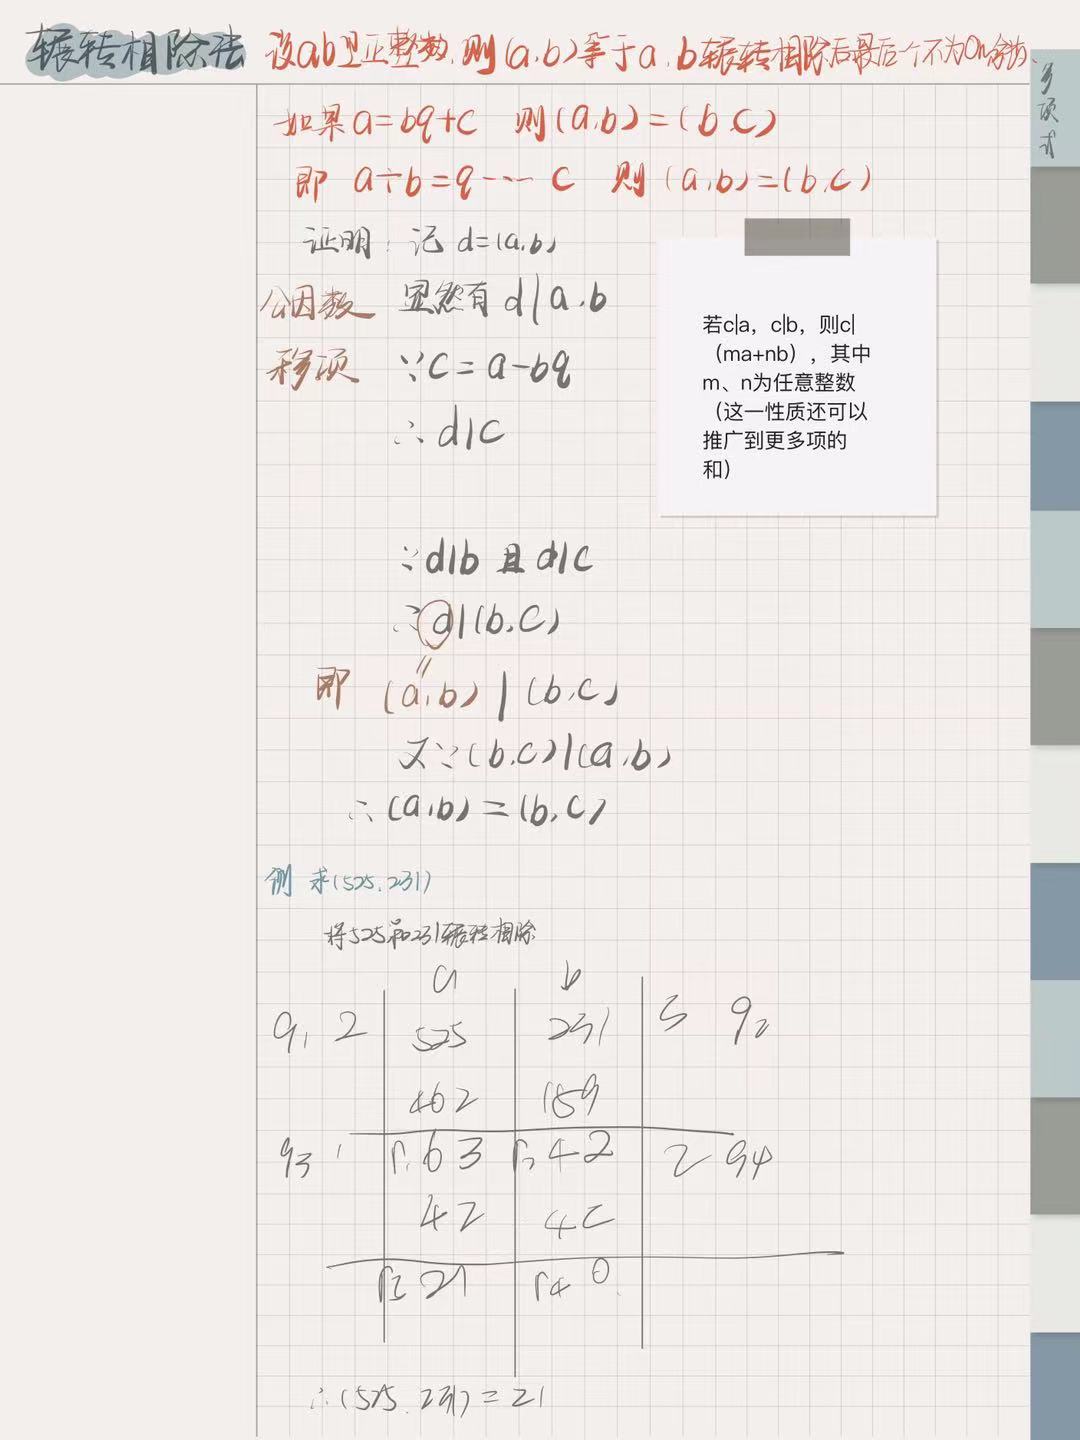 辗转相除法 设ab是正整数,则(a,b)等于a,b辗转相除后最后一个不为0的余数.
多项式
如果a=bq+c 则(a,b)=(b,c)
即 a÷b=q……c 则(a,b)=(b,c)
证明:记 d=(a,b)
公因数 显然有 d|a,b
移项 ∵c=a-bq
∴d|c
若c|a，c|b，则c|
（ma+nb），其中
m、n为任意整数
（这一性质还可以
推广到更多项的
和）
∵d|b 且 d|c
∴d|(b,c)
=
即 (a,b)|(b,c)
又∵(b,c)|(a,b)
∴(a,b)=(b,c)
例 求(525,231)
将525和231辗转相除
a b
q1 2 525 231 3 q2
462 189
q3 1 r1 63 r2 42 2 q4
42 42
r3 21 r4 0
∴(525,231)=21